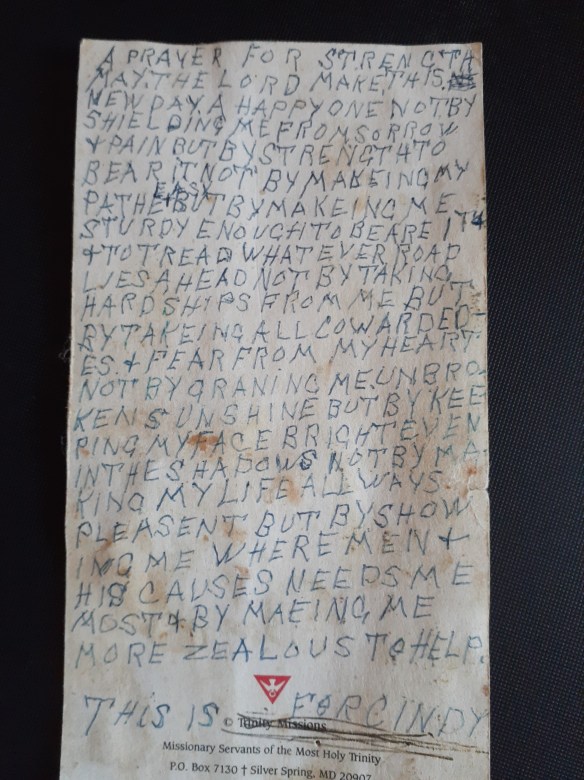 A PRAYER FOR STRENGTH
MAY.THE LORD MAKE THIS
NEW DAY A HAPPY ONE NOT BY
SHIELDING ME FROM SORROW
& PAIN BUT BY STRENGTH TO
BEAR IT NOT BY MAKEING MY
PATH EASY BUT BY MAKEING ME
STURDY ENOUGH TO BEARE IT
& TO TREAD WHAT EVER ROAD
LIES AHEAD NOT BY TAKING
HARDSHIPS FROM ME BUT
BY TAKEING ALL COWARDED-
ES. & FEAR FROM MY HEART
NOT BY GRANING ME UNBRO-
KEN SUNSHINE BUT BY KEE
PING MY FACE BRIGHT EVEN
IN THE SHADOWS NOT BY MA-
KING MY LIFE ALLWAYS
PLEASENT BUT BY SHOW
ING ME WHERE MEN &
HIS CAUSES NEEDS ME
MOST & BY MAEING ME
MORE ZEALOUS TO HELP.
THIS IS FOR CINDY
© Trinity Missions
Missionary Servants of the Most Holy Trinity
P.O. Box 7130 † Silver Spring, MD 20907